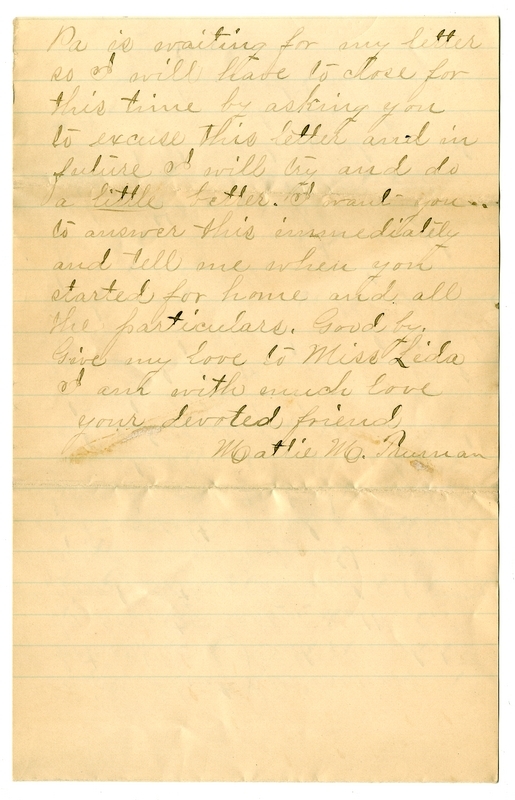 Pa is waiting for my letter
so I will have to close for
this time by asking you
to excuse this letter and in
future I will try and do
a little better. I want you
to answer this immediately
and tell me when you
started for home and all
the particulars. Good by.
Give my love to Miss Lida
I am with much love
your devoted friend
Mattie M. Truman